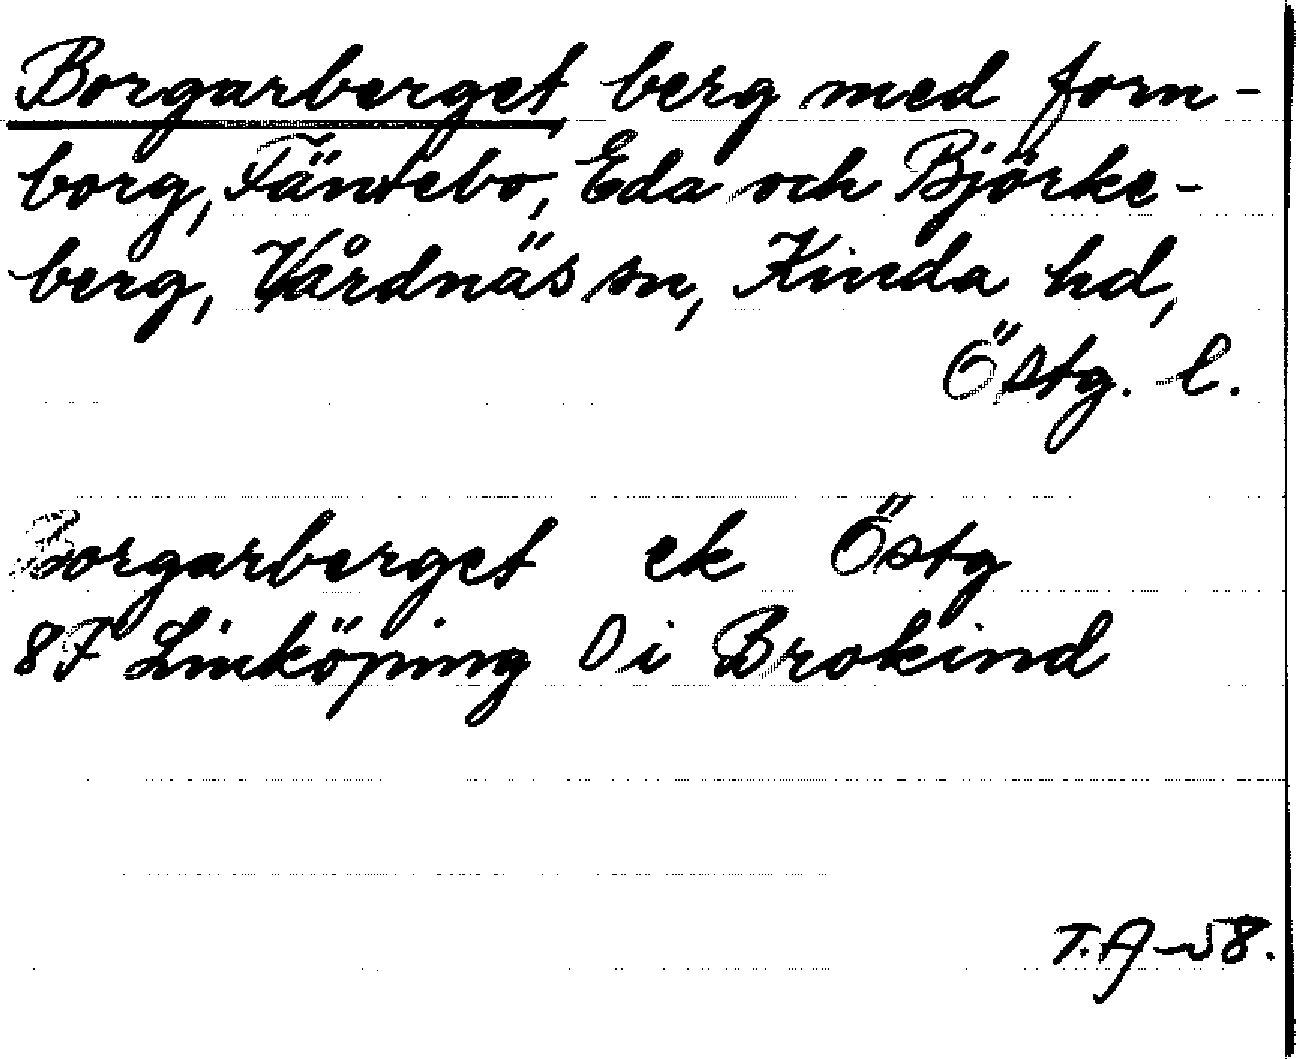 Borgarberget berg med forn-
borg, Fäntebo, Eda och Björke-
berg, Vårdnäs sn, Kinda hd,
Östg. l.
Borgarberget ek Östg
8F Linköping O i Brokind
T.A-58.